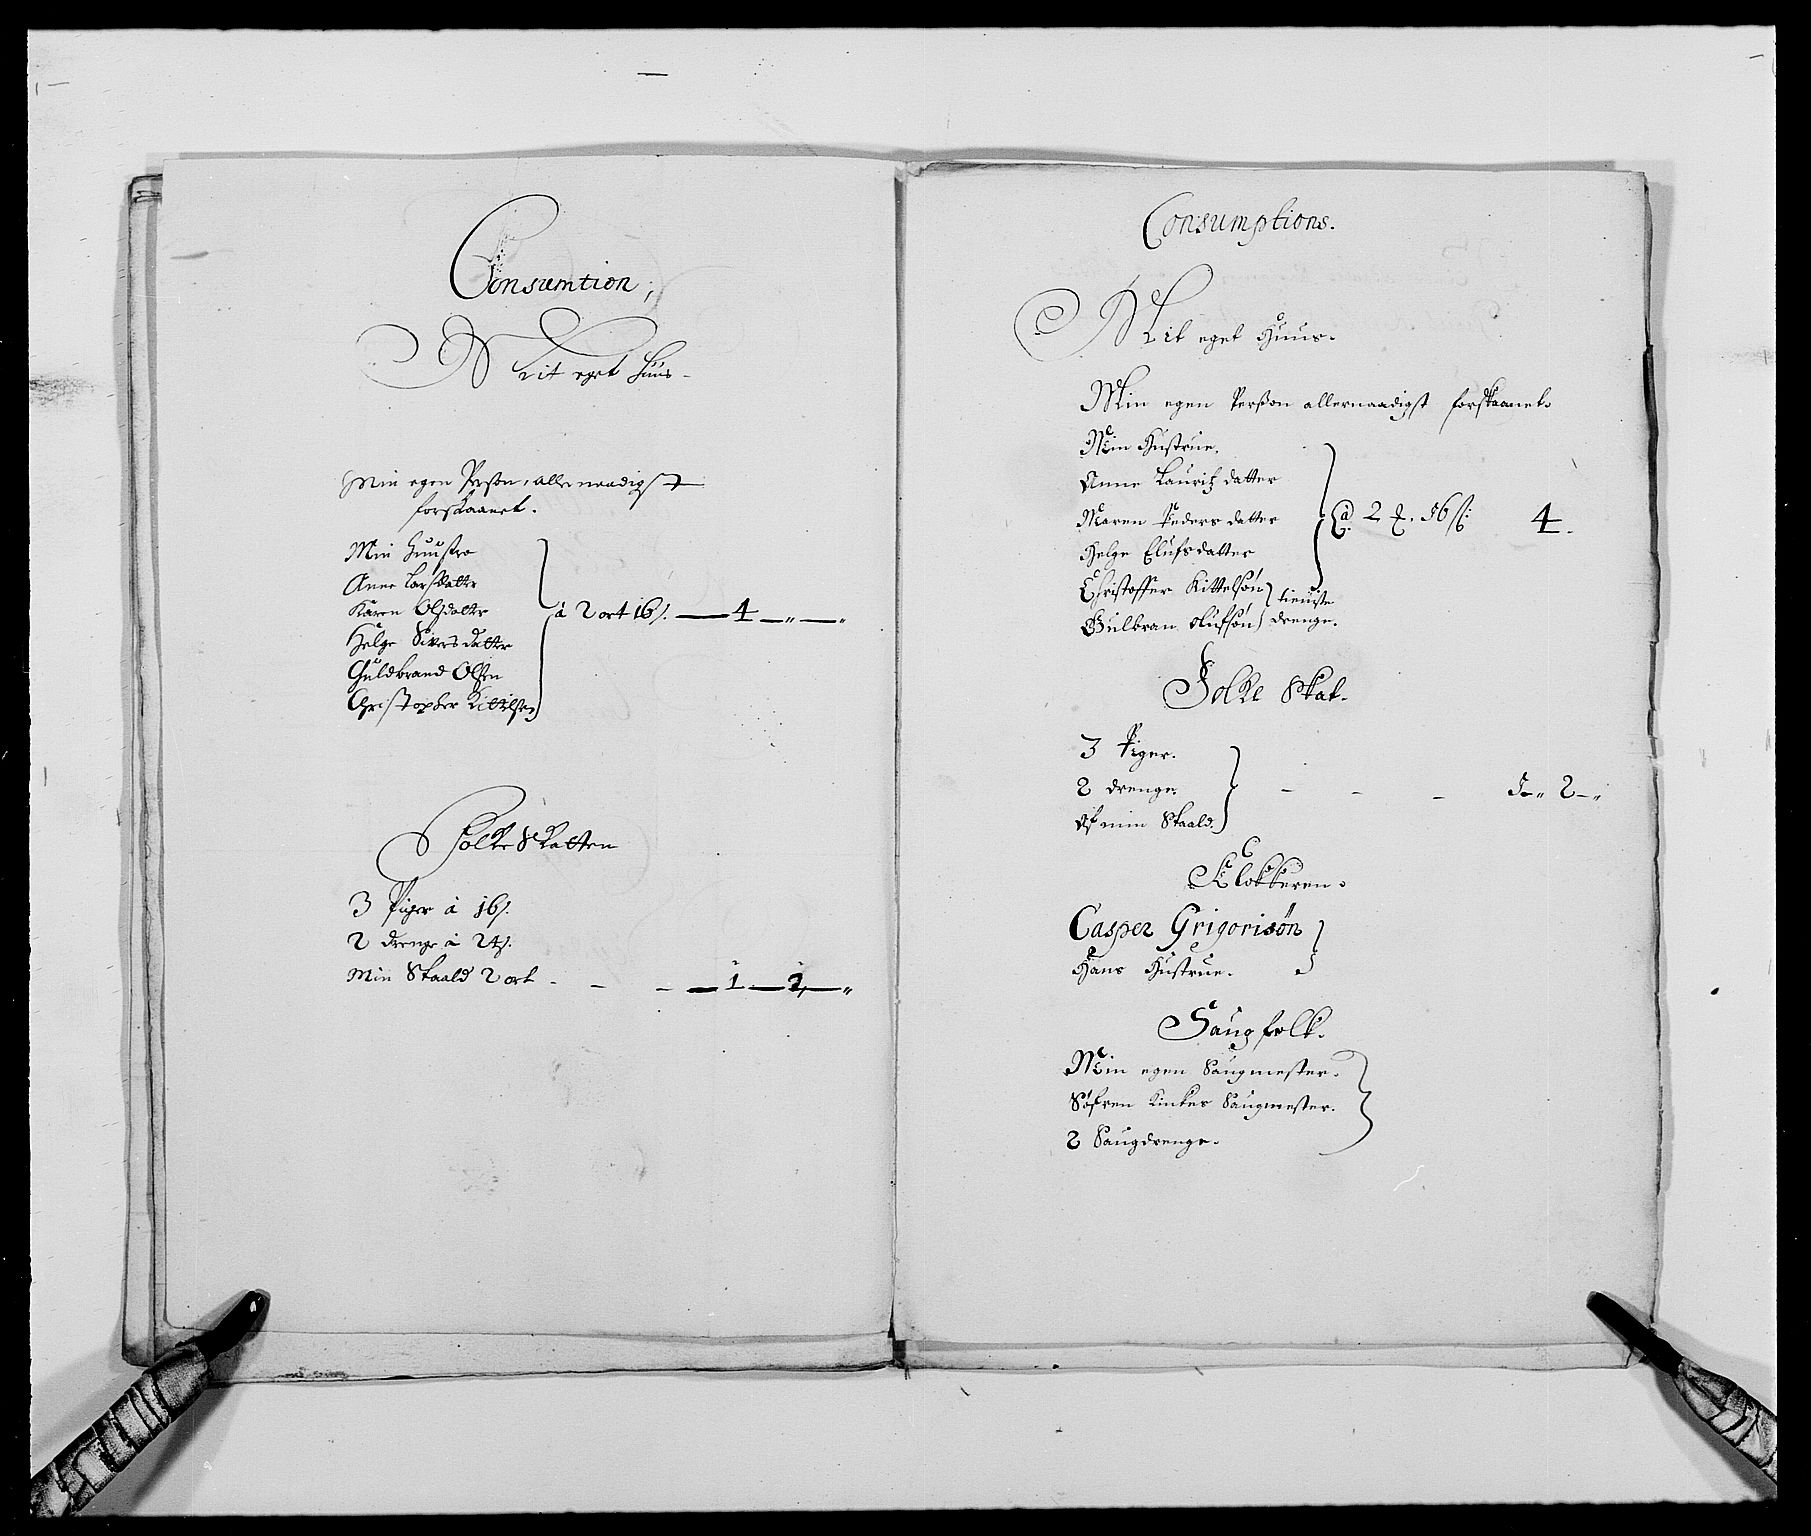 Consumtion,
Mit eget Huus
Min egen Person, allernaadigst
forskaanet.
Min Huustro
Anne Larsdatter
Karen Olsdatter
Helge Siversdatter
Guldbrand Olsen
Christopher Kittilsen
à 2 ort 16 s. — 4 — „ — „
Folke Skatten
3 Piger à 16 s.
2 drenge à 24 s.
Min Skaald 2 ort - - - — 1 — 2 — „
Consumptions.
Mit eget Huus.
Min egen Perßon allernaadigst forskaanet.
Min Hustrue.
Anne Lauritz datter
Maren Peders datter
Helge Elufsdatter
Christoffer Kittelsøn
Gulbran Olufsøn
tieniste
drenge.
à 2 16 s: 4.
Folke Skat.
3 Piger.
2 drenge.
Af min Skaald.
- - - 1 „ 2 - „
Klokkeren.
Casper Grigorisøn
Hans Hustrue.
Saugfolk.
Min egen Saugmester.
Søfren Saugmester.
2 Saugdrenge.